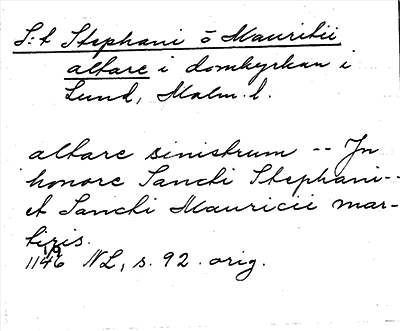 S:t Stephani o Mauritii
altare i domkyrkan i
Lund, Malm. l.
altare sinistrum -- In
honore Sancti Stephani--
et Sancti Mauricii mar-
tiris.
1146 NL, s. 92. orig.